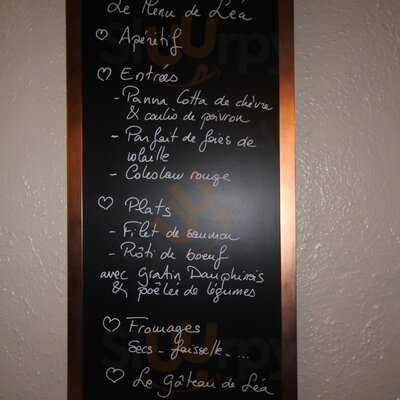 Le Menu de Léa
♡ Apéritif
♡ Entrées
- Panna Cotta de chèvre
& coulis de poivron
- Parfait de foies de
volaille
- Coleslaw rouge
♡ Plats
- Filet de saumon
- Rôti de boeuf
avec Gratin Dauphinois
& poêlée de légumes
♡ Fromages
Secs - faisselle - ...
♡ Le gâteau de Léa